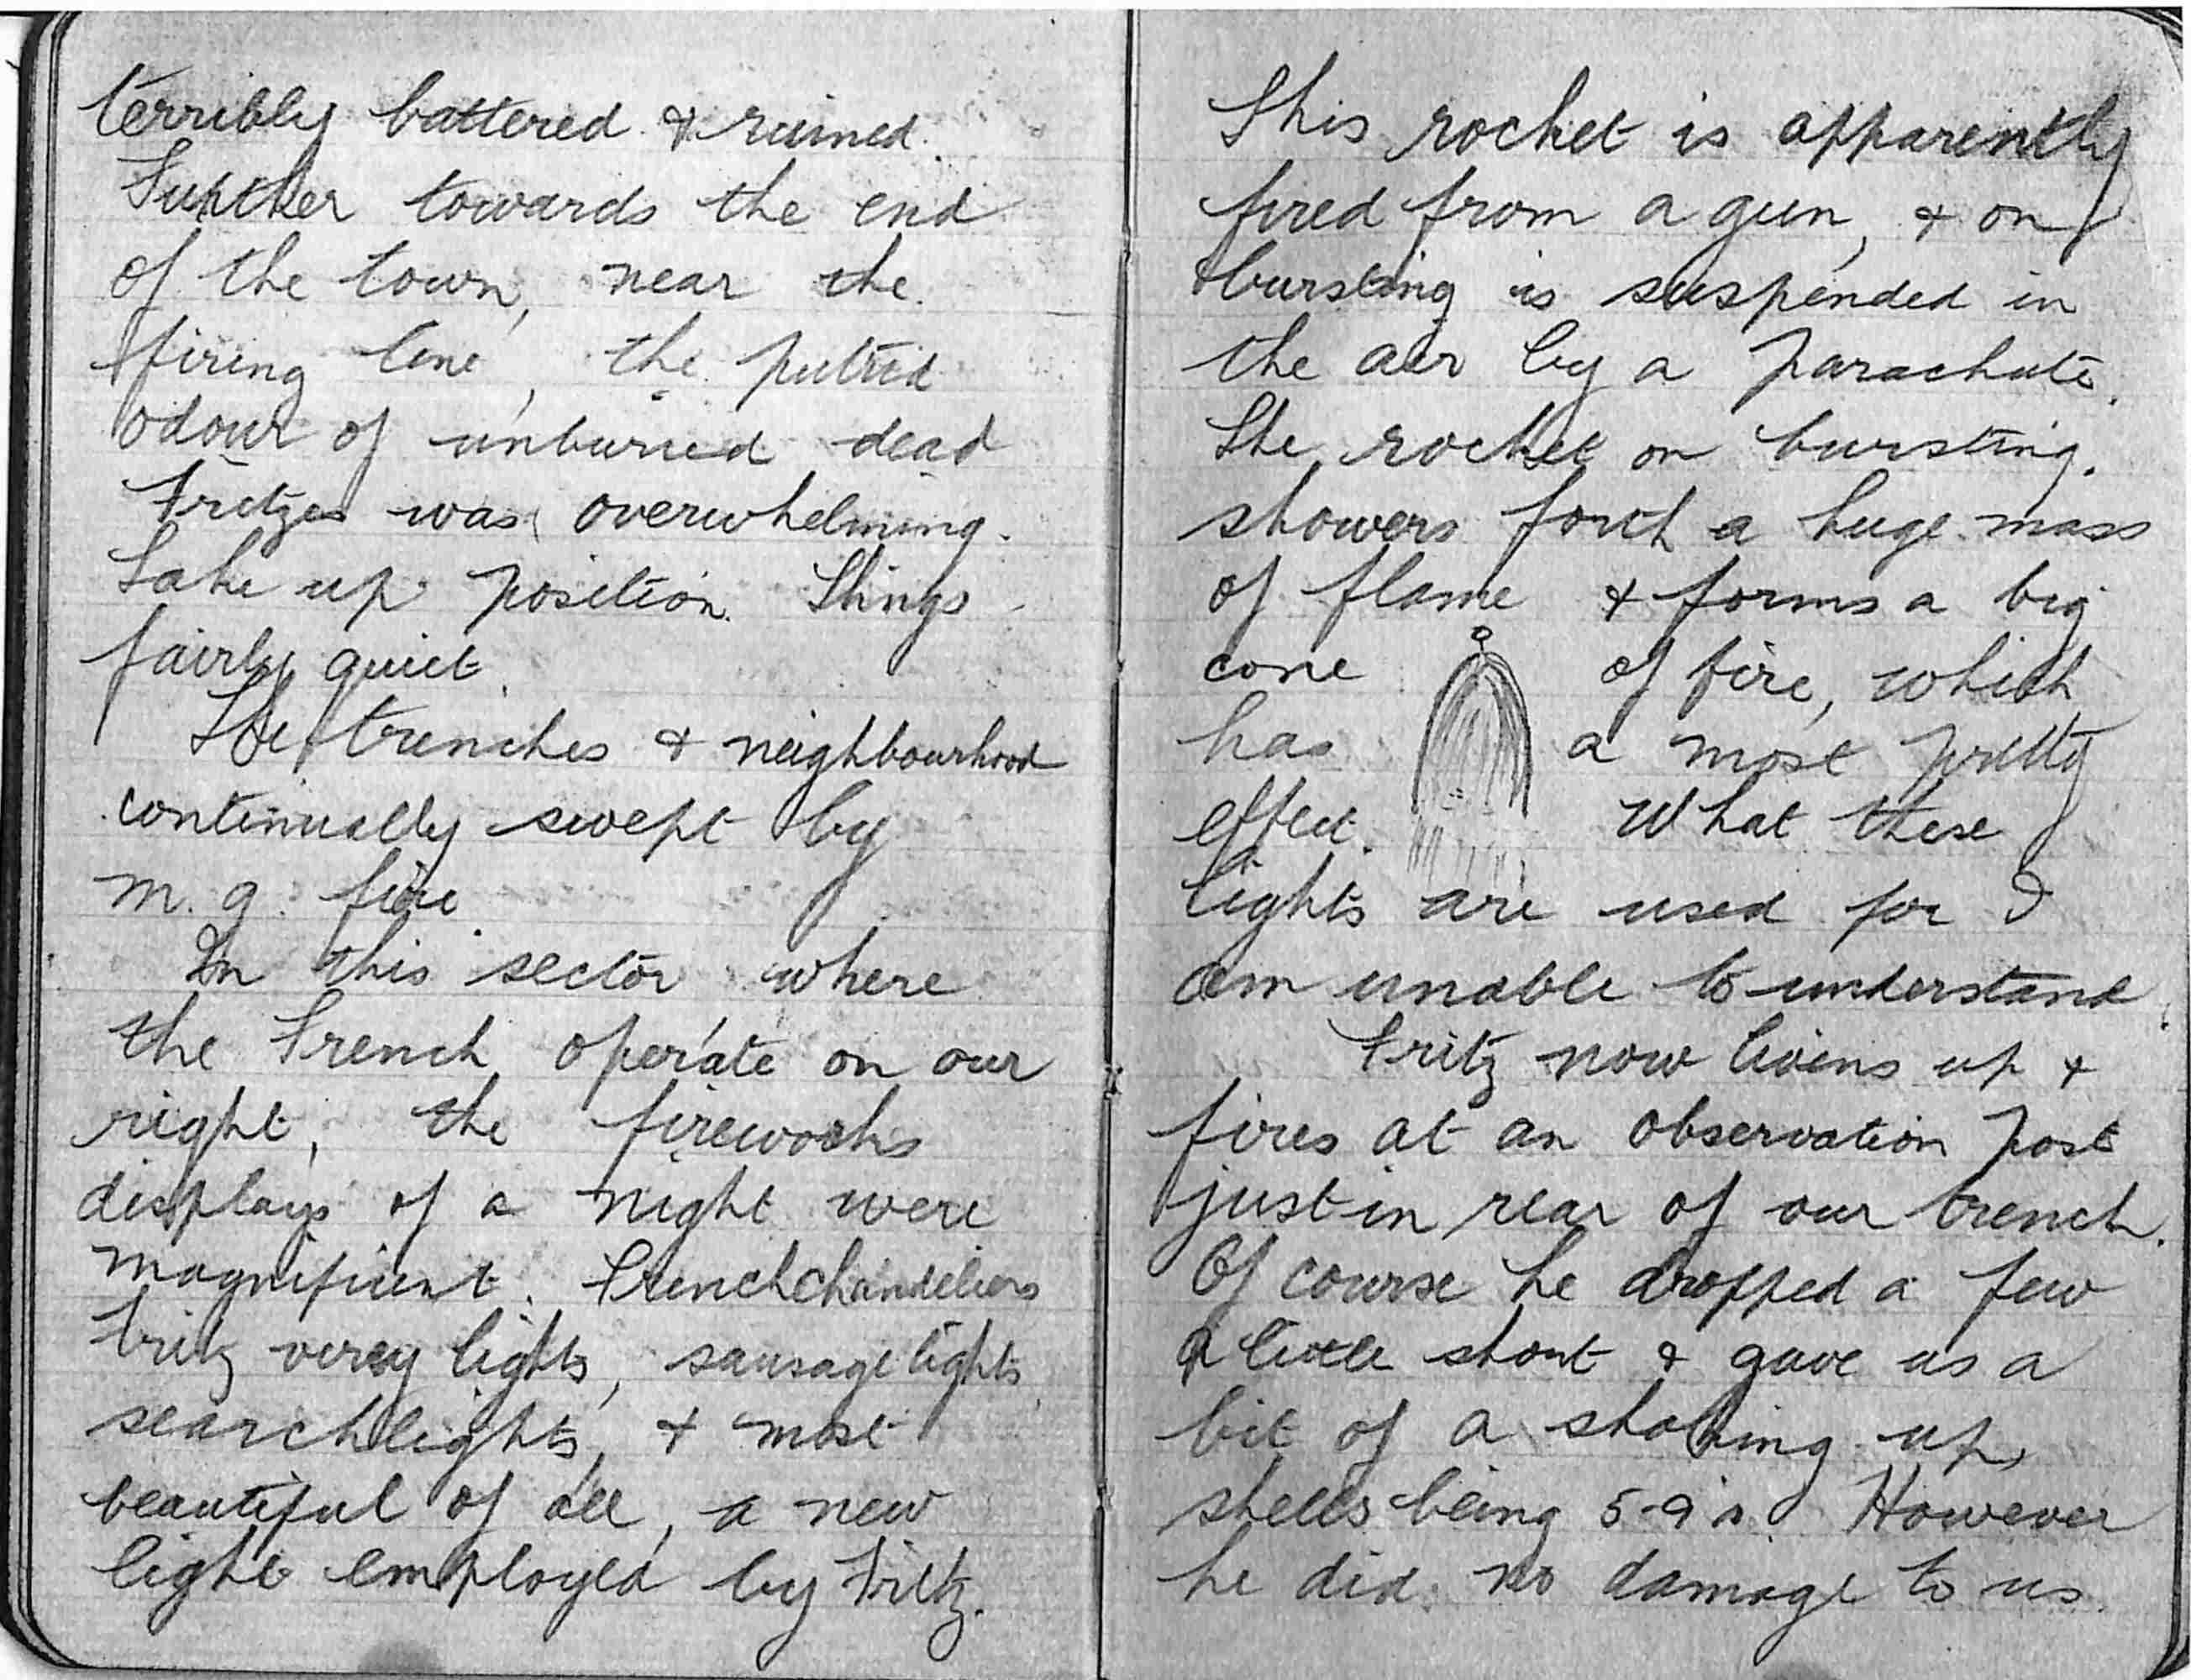 terribly battered & ruined.
Further towards the end
of the town, near the
firing line, the putrid
odour of unburied dead
Fritzes was overwhelming.
Take up position. Things
fairly quiet.
The trenches & neighbourhood
continually swept by
m. g. fire.
In this sector where
the French operate on our
right, the fireworks
displays of a night were
magnificent. French chandeliers
Fritz verey lights, sausage lights,
searchlights, & most
beautiful of all, a new
light employed by Fritz.
This rocket is apparently
fired from a gun, & on
bursting is suspended in
the air by a parachute.
The rocket on bursting.
showers forth a huge mass
of flame & forms a big
cone of fire, which
has a most pretty
effect. What these
lights are used for I
am unable to understand.
Fritz now livens up &
fires at an observation post
just in rear of our trench.
Of course he dropped a few
a little short & gave us a
bit of a shaking up,
shells being 5-9's. However
he did no damage to us.